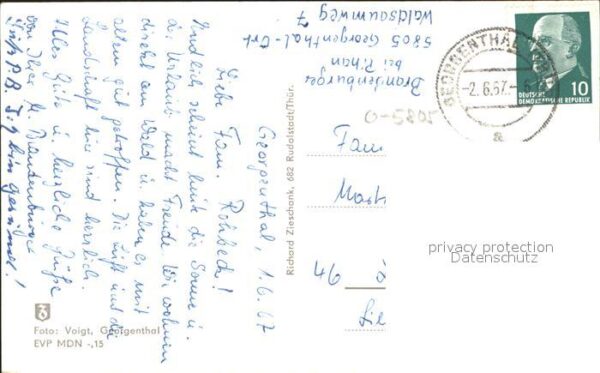 Georgenthal, 1.6.67
Liebe Fam. Rohbeck!
Endlich scheint heute die Sonne u.
der Urlaub macht Freude. Wir wohnen
direkt am Wald u. haben es mit
allem gut getroffen. Die Luft und die
Landschaft hier sind herrlich.
Alles Gute u. herzliche Grüße
von Ihrer M. Brandenburger
Brandenburger
bei Rhan
5805 Georgenthal-Ort
Waldsaumweg 7
GEORGENTHAL
-2.6.67.-
a
DEUTSCHE
DEMOKRATISCHE REPUBLIK
10
O-5805
Fam
46
Richard Zieschank, 682 Rudolstadt/Thür.
privacy protection
Datenschutz
Foto: Voigt, Georgenthal
EVP MDN -,15